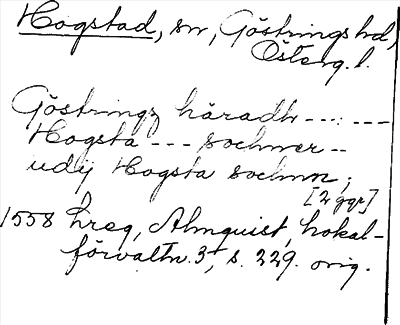 Hogstad, sn, Göstrings hd,
Österg. l.
Göstringz häradh ---: ---
Hogsta --- sochner --
udij Hogsta sochnn;
[2 ggr]
1558 hreg, Almquist, Lokal-
förvaltn. 3, s. 229. orig.